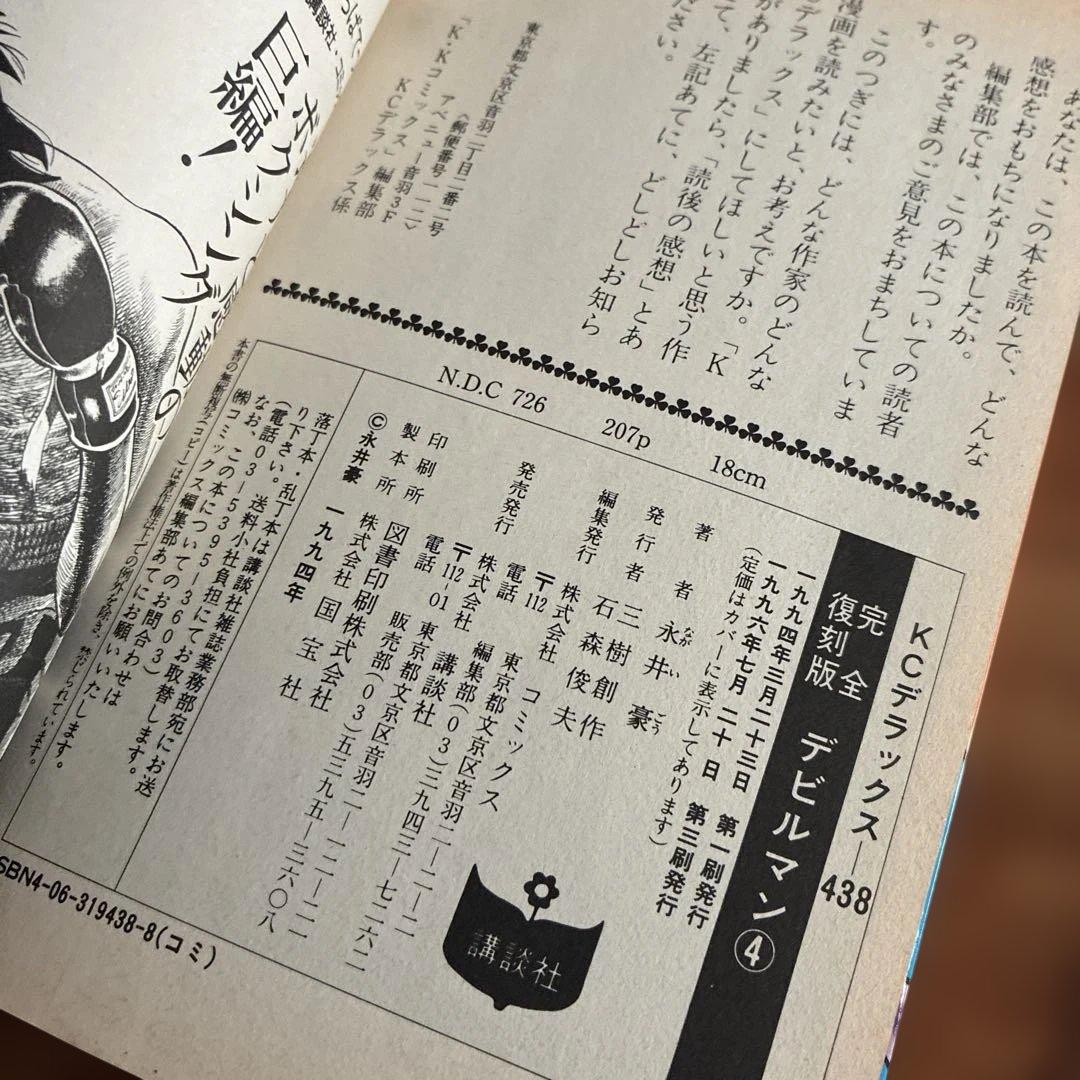 あなたは、この本を読んで、どんな
感想をおもちになりましたか。
編集部では、この本についての読者
のみなさまのご意見をおまちしていま
す。
このつぎには、どんな作家のどんな
漫画を読みたいと、お考えですか。「K
デラックス」にしてほしいと思う作
がありましたら、「読後の感想」とあ
て、左記あてに、どしどしお知ら
ださい。
東京都文京区音羽二丁目二番二号
〈郵便番号一一二〉
アベニュー音羽3F
「K・Kコミックス」編集部
KCデラックス係
N.D.C 726 207p 18cm
KCデラックス―438
完全復刻版 デビルマン④
一九九四年三月二十三日 第一刷発行
一九九六年七月二十日 第三刷発行
(定価はカバーに表示してあります)
著者 永井豪
なが い ごう
発行者 三樹創作
編集発行 石森俊夫
株式会社 コミックス
〒112 東京都文京区音羽二―二―二
電話 編集部(03)三九四三―七二六二
発売発行 株式会社 講談社
〒112-01 東京都文京区音羽二―一二―二一
電話 販売部(03)五三九五―三六〇八
印刷所 図書印刷株式会社
製本所 株式会社国宝社
©永井豪 一九九四年
落丁本・乱丁本は講談社雑誌業務部宛にお送
り下さい。送料小社負担にてお取替します。
(電話03―5395―3603)
なお、この本についてのお問合わせは
㈱コミックス編集部あてにお願いいたします。
本書の無断複写(コピー)は著作権法上での例外を除き、禁じられています。
SBN4-06-319438-8(コミ)
講談社
ボクシング
巨編!